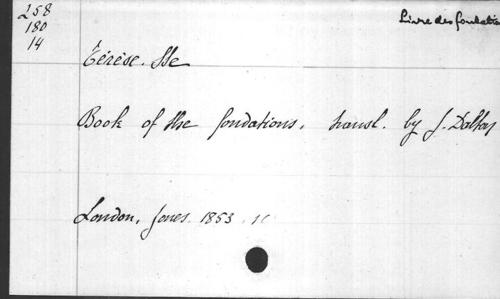 258
180
14
Livre des fondatio
Térèse. Ste
Book of the fondations, transl. by J. Dalton
London, Jones. 1853.